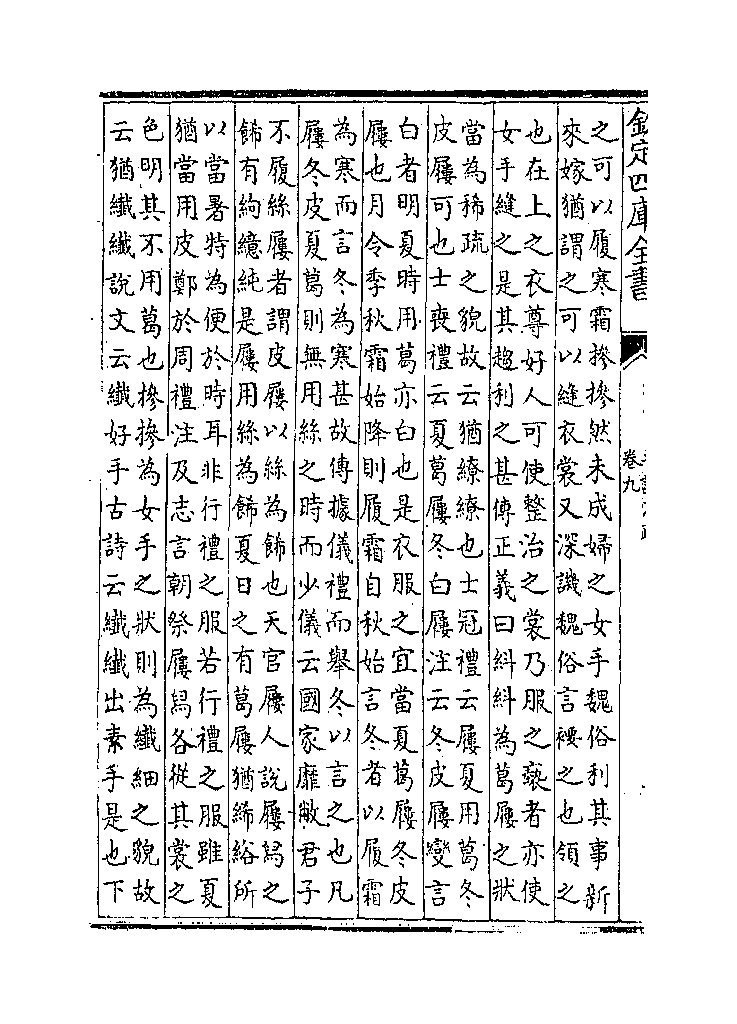 欽定四庫全書
卷九
之可以履寒霜摻摻然未成婦之女手魏俗利其事新
來嫁猶謂之可以縫衣裳又深譏魏俗言褄之也領之
也在上之衣尊好人可使整治之裳乃服之褻者亦使
女手縫之是其趨利之甚傳正義曰糾糾為葛屨之狀
當為稀疏之貌故云猶繚繚也士冠禮云屨夏用葛冬
皮屨可也士喪禮云夏葛屨冬白屨注云冬皮屨變言
白者明夏時用葛亦白也是衣服之宜當夏葛屨冬皮
屨也月令季秋霜始降則履霜自秋始言冬者以履霜
為寒而言冬為寒甚故傳據儀禮而舉冬以言之也凡
屨冬皮夏葛則無用絲之時而少儀云國家靡敝君子
不履絲屨者謂皮屨以絲為飾也天官屨人說屨舄之
飾有絇繶純是屨用絲為飾夏日之有葛屨猶絺綌所
以當暑特為便於時耳非行禮之服若行禮之服雖夏
猶當用皮鄭於周禮注及志言朝祭屨舄各從其裳之
色明其不用葛也摻摻為女手之狀則為纖細之貌故
云猶纖纖說文云纖好手古詩云纖纖出素手是也下